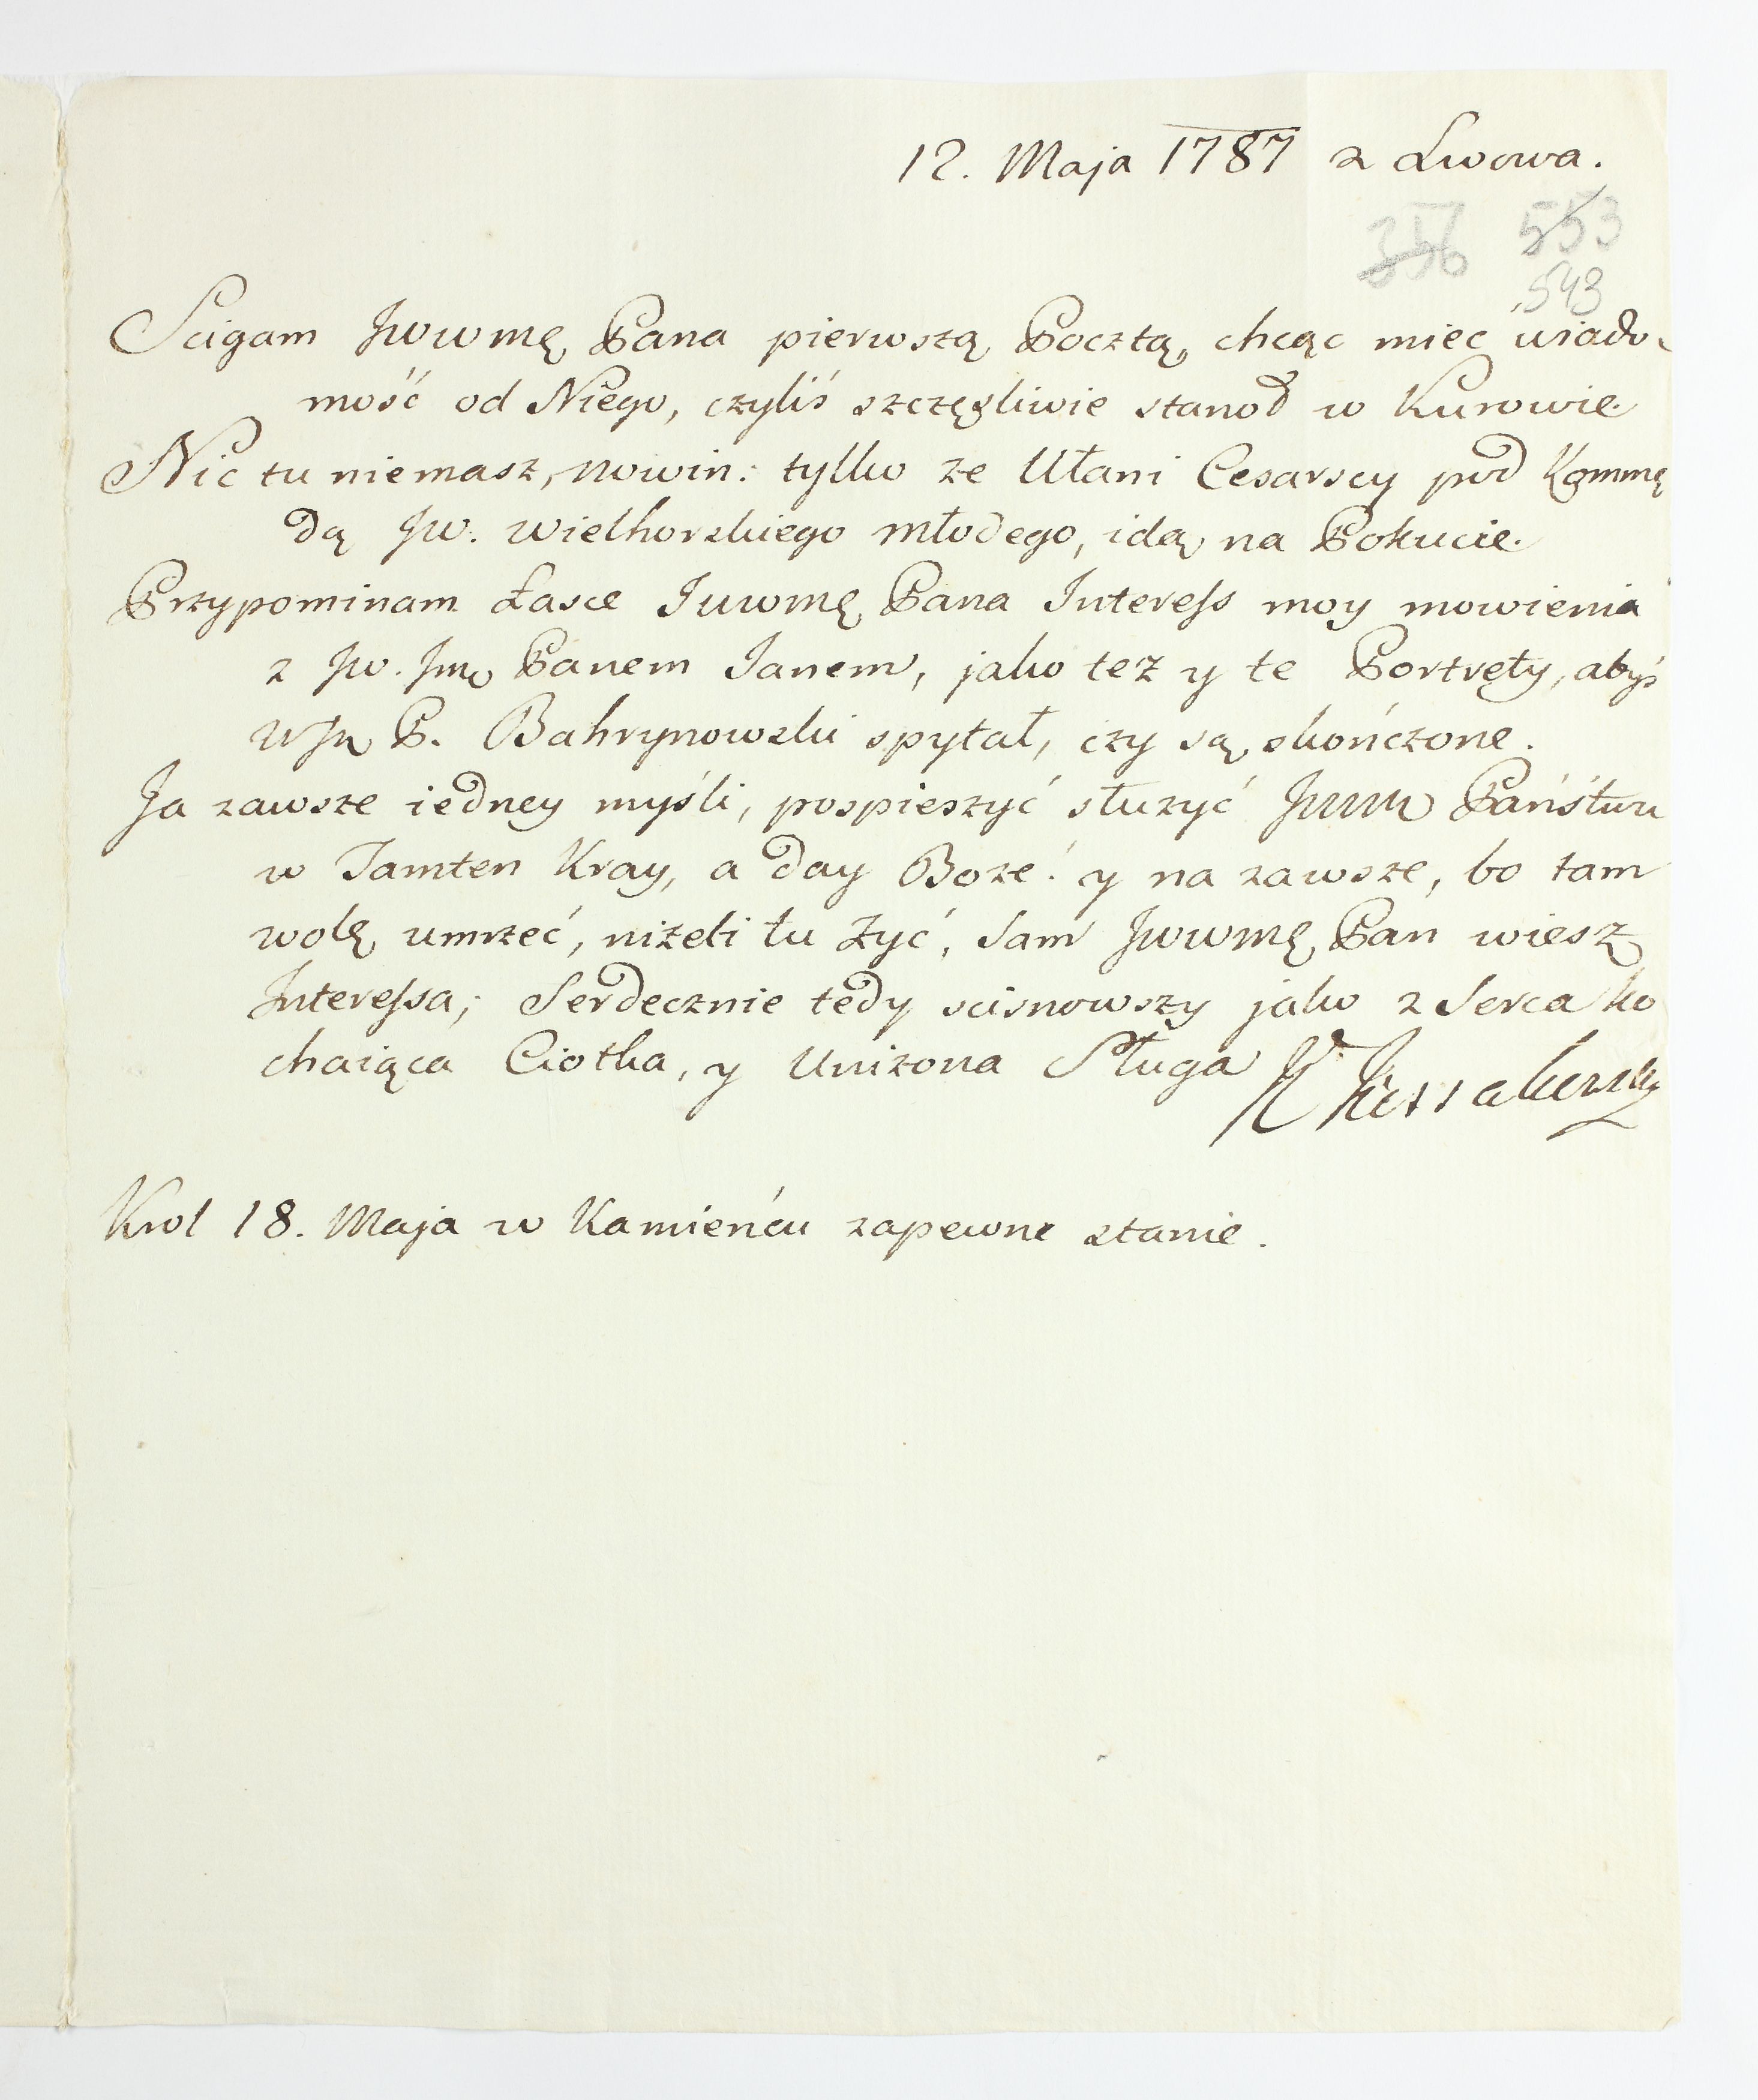 12. Maja 1787 z Lwowa.
553
543
Scigam Jwwmę Pana pierwszą Pocztą, chcąc miec wiado-
mość od Niego, czyliś szczęsliwie stanoł w Kurowie.
Nic tu niemasz, nowin: tylko ze Ułani Cesarscy pod Kommę
dą Jw. Wielhorskiego młodego, idą na Pokucie.
Przypominam Łasce Jwwmę Pana Interess moy mowienia
z Jw. Jmę Panem Janem, jako też y te Portręty, abyś
P. Bahrynowski spytał, czy są skończone.
Ja zawsze iedney myśli, pospieszyć słuzyć Państwu
w Tamten Kray, a day Boże! y na zawsze, bo tam
wolę umrzeć, niżeli tu żyć, Sam Jwwmę Pan wiesz
Interessa; Serdecznie tedy scisnowszy jako z Serca ko
chaiąca Ciotka, y Unizona Sługa
Krol 18. Maja w Kamieńcu zapewne stanie.